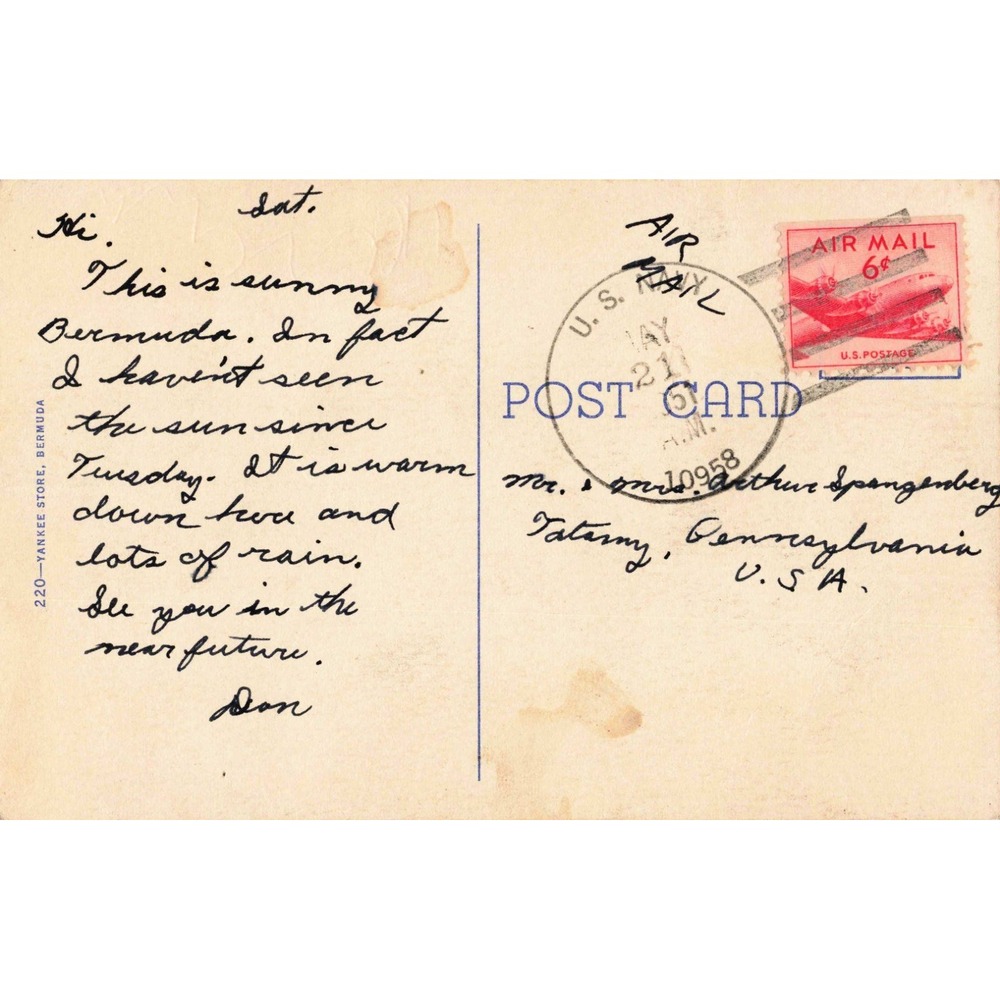 Sat.
Hi.
This is sunny
Bermuda. In fact
I haven't seen
the sun since
Tuesday. It is warm
down here and
lots of rain.
See you in the
near future.
Don
220—YANKEE STORE, BERMUDA
AIR
MAIL
AIR MAIL
6¢
U.S. POSTAGE
U. S. NAVY
MAY
21
51
A.M.
10958
POST CARD
Mr. & Mrs. Arthur Spangenberg
Tatamy, Pennsylvania
U. S A.